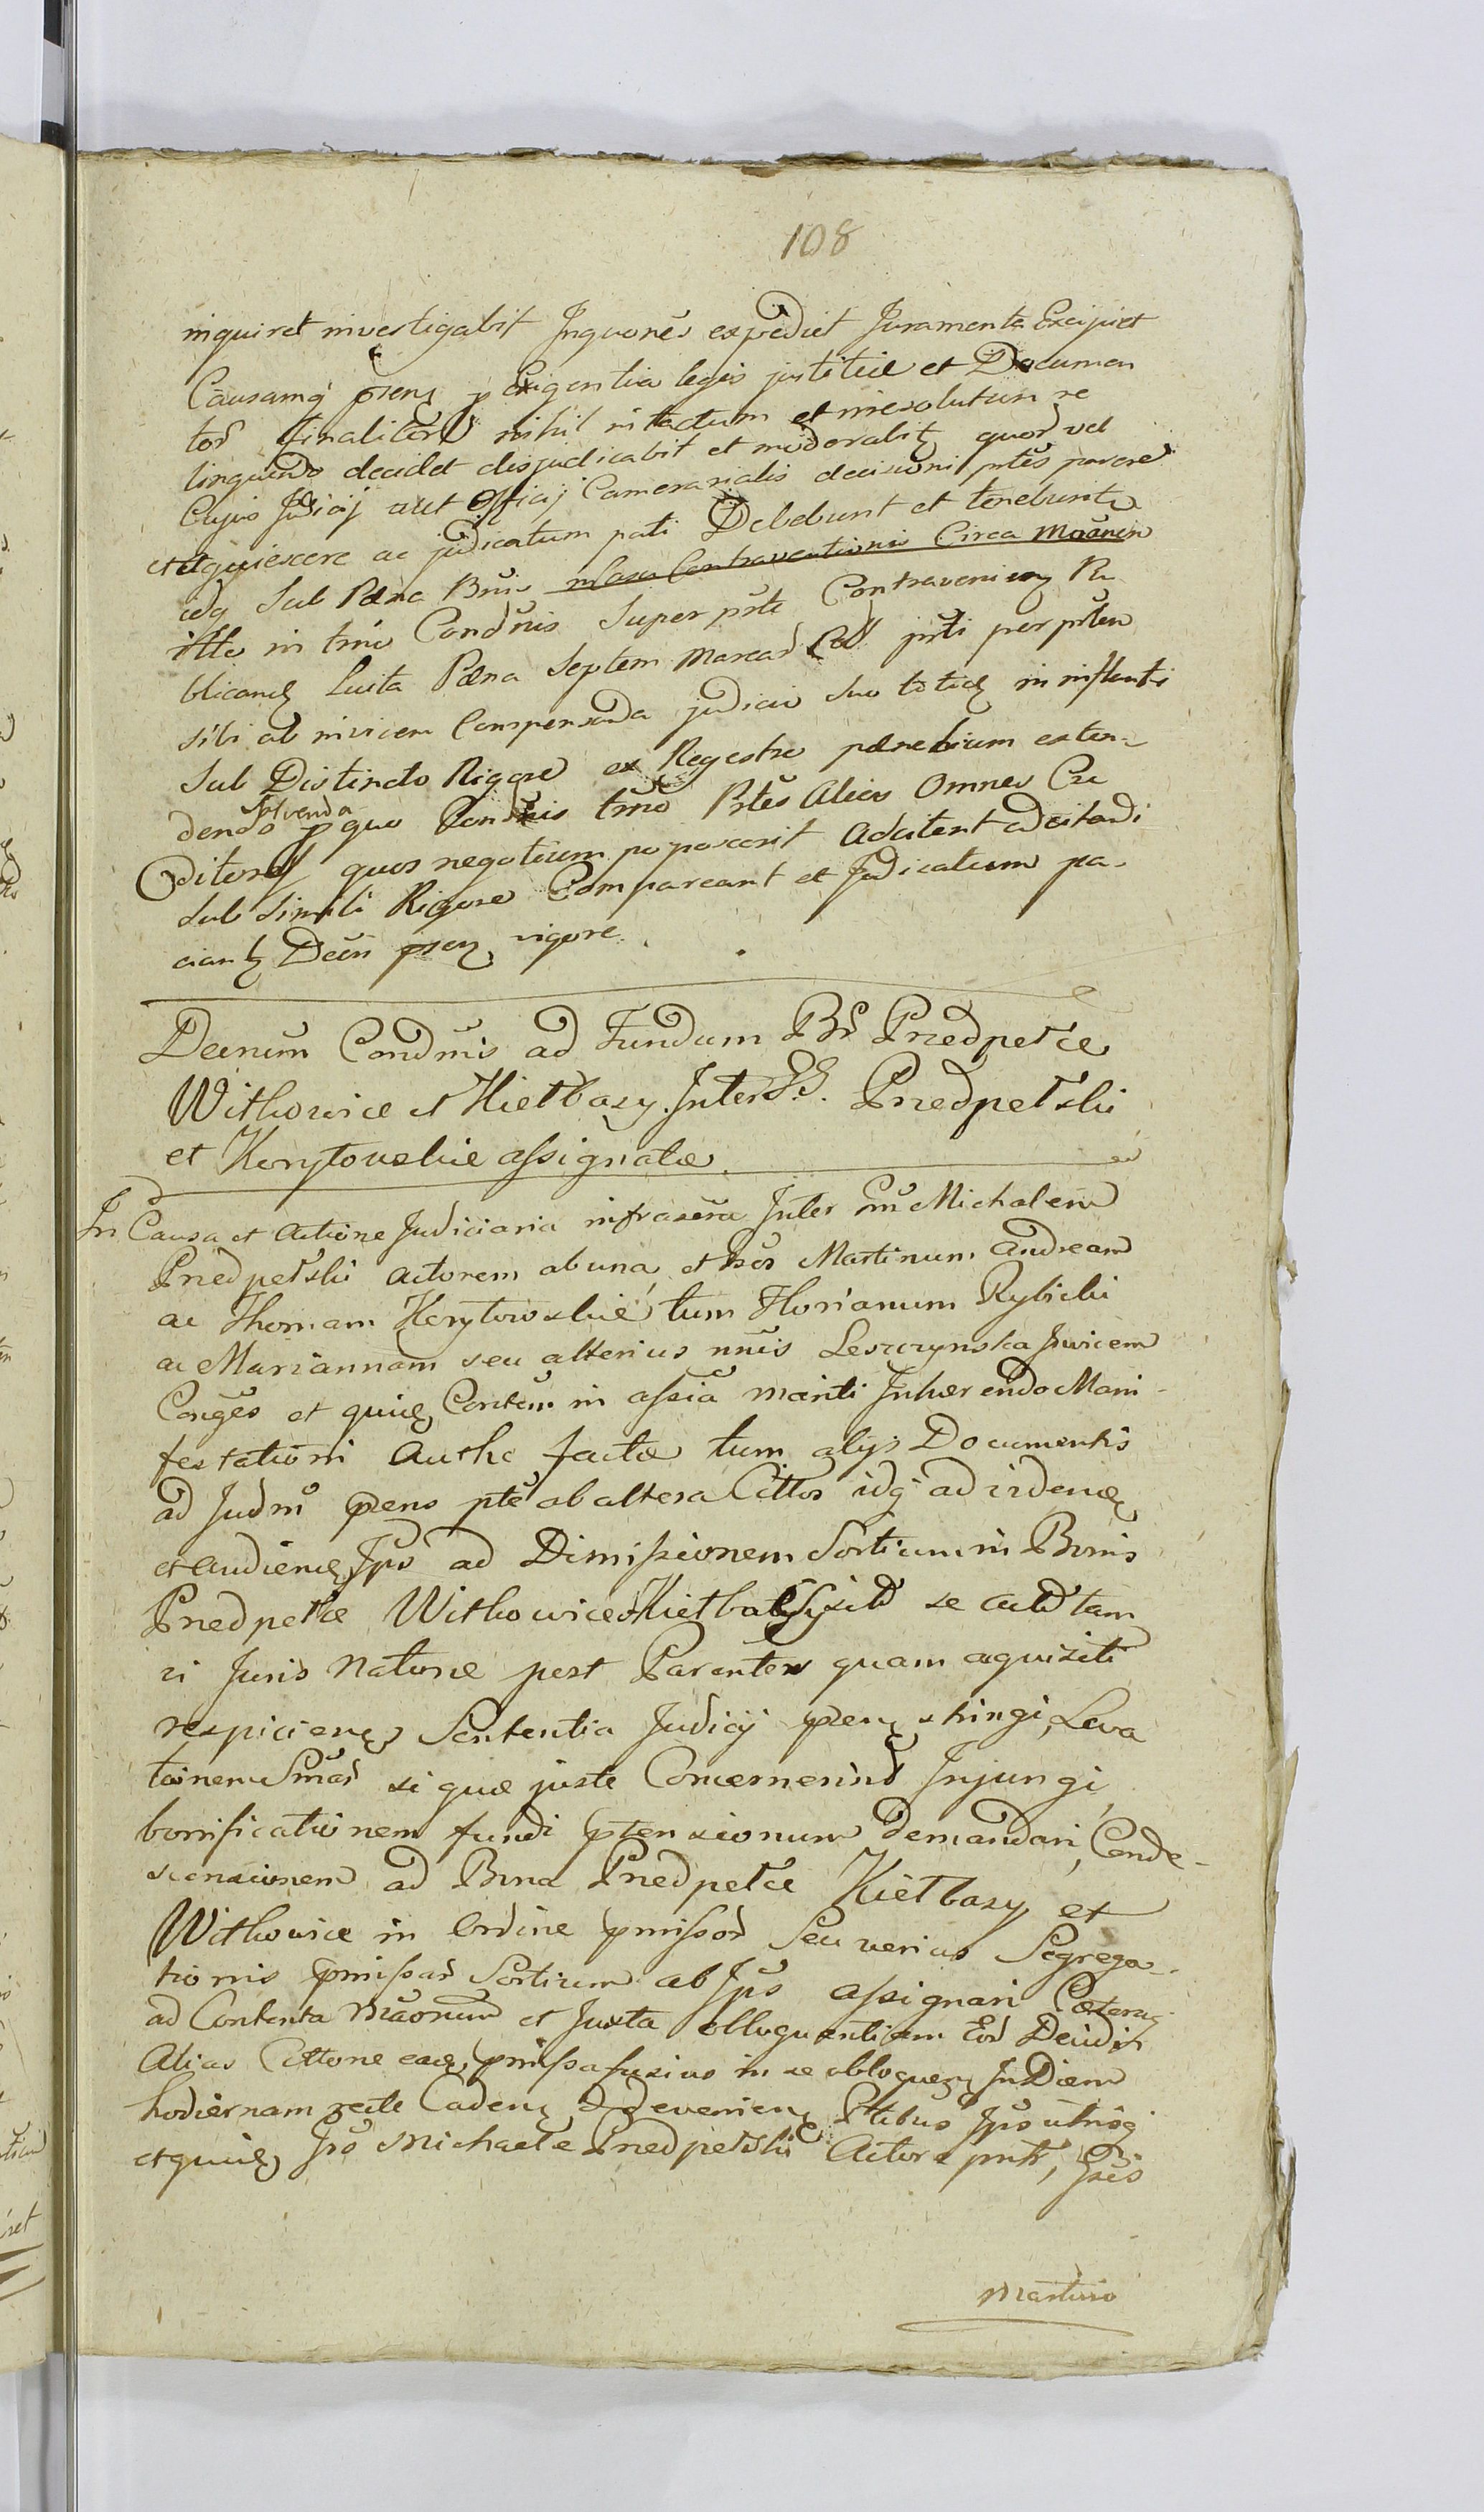 108
inquiret investigabit Inquones expediet Juramenta Excipiet
Causamq pñenq p Exigentia legis justitiæ et Documen
tor finaliter nihil intactum et irresolutum re
linquendo decidet disjudicabit et moderabit quor vel
Cujus Judicij aut Officij Camerarialis decisioni ptes parere
et acquiescere ac judicatum pati Debebunt et tenebunt
idq Sub Pæna Bnis in Casu Contraventionis Circa
itte in tmo Condnis Super pñte Contravenienq Pu
blicanda Luita Pæna Septem Marcar Pol pñti per pñtem
sibi ab invicem Compensanda judicio suo toties in instanti
Sub Distincto Rigore ex Regestro pænalium exten-
dendo Solvenda p quo Condnis tmo Ptes Alios Omnes Cre
ditores quos negotium poposcerit Adcitent adcitandi
Sub Simili Rigore Compareant et Judicatum pa-
ciant Decñ pñenq vigore
Decrum Condnis ad Fundum Br Przedpełce
Witkowice et Kiełbasy Inter GG. Przedpełski
et Korytowskie assignatæ
In Causa et Actione Judiciaria infrascra Inter Gm Michalem
Przedpełski Actorem ab una, et Gsos Martinum Andream
ac Thomam Korytowskie tum Florianum Rybicki
ac Mariannam seu alterius nñis Leszczynska Invicem
Conges et quilq Conten in assia mariti Inhærendo Mani-
festationi Authe factæ tum alijs Documentis
ad Judm pñens pte ab altera Cittos idq ad videnq
et audienq Ipso ad Dimissionem Sortium in Bonis
Przedpełce Witkowice Kiełbasy se
vi Juris Naturæ post Parentes quam aquisiti
respicienq Sententia Judicij pñenq stringi, Leva
toinem Smar si quæ juste Concernerint Injungi,
bonificationem fundi ptensionum demandari, Conde-
scensionem ad Bona Przedpełce Kiełbasy et
Witkowice in Ordine pmissor Seu verius Segrega-
tionis pmissar Sortium ab Ipso assignari Cæteraq
ad Contenta Maorum et Juxta obloquentiam Eor Decidi
Alias Cittone eaq pmissa fusius in se obloquenq In Diem
hodiernam recte Cadenq et devenienq Ptibus Ipso utrisq
et quilq Ipso Michaele Przedpełski Actore pnte, Gsis
Martino